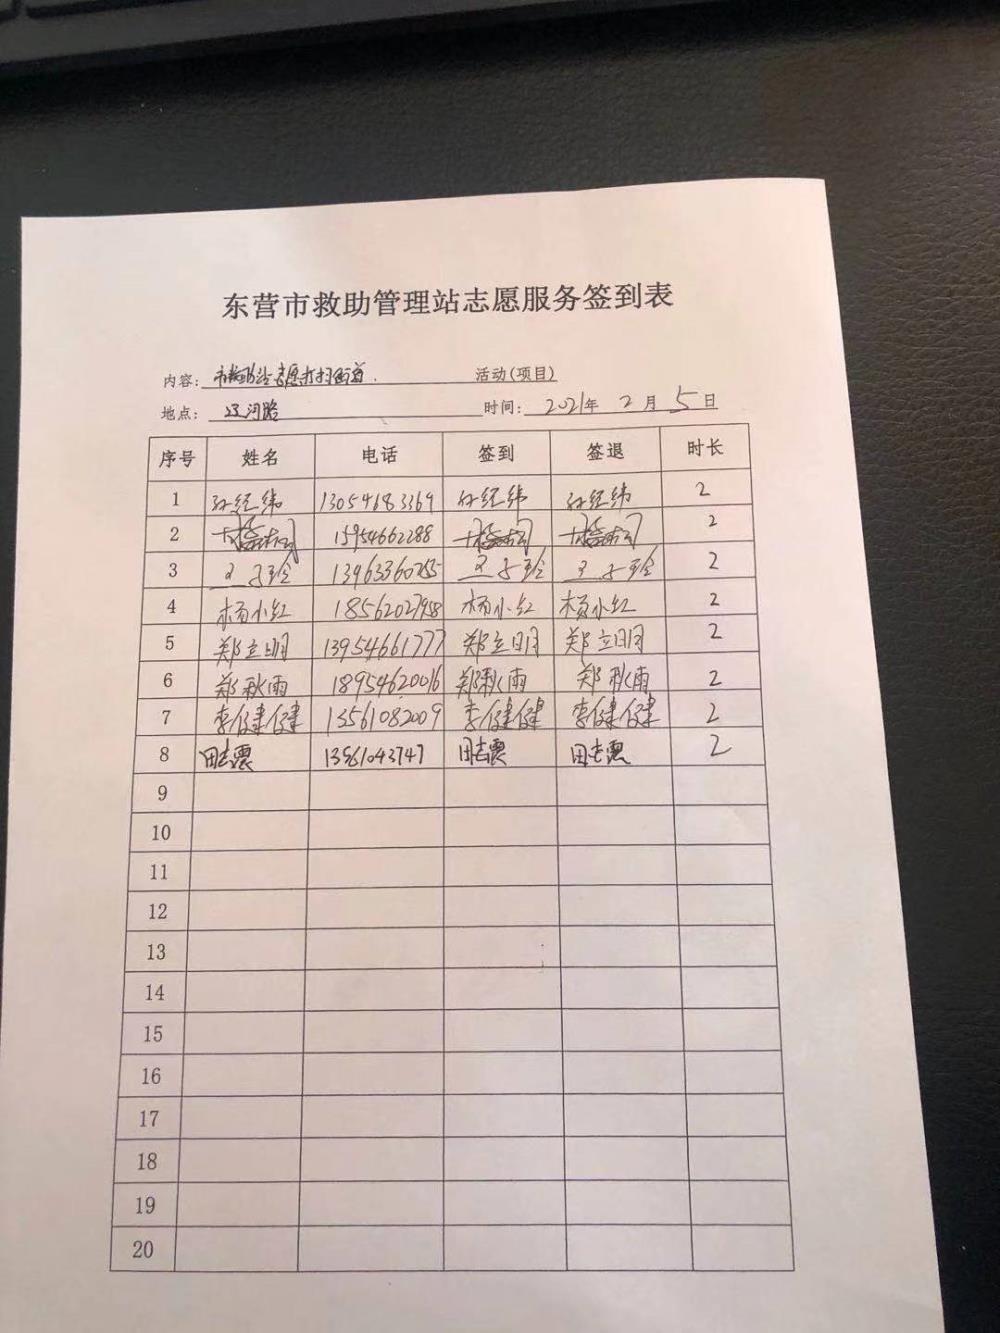 东营市救助管理站志愿服务签到表
内容: 志愿打扫街道 活动(项目)
地点: 辽河路 时间: 2021年 2月 5日
序号 姓名 电话 签到 签退 时长
1 孙经纬 13054683369 孙经纬 孙经纬 2
2 15954662288 2
3 王子玲 13963360255 王子玲 王子玲 2
4 杨小红 18562027958 杨小红 杨小红 2
5 郑立明 13954661777 郑立明 郑立明 2
6 郑秋雨 18954620016 郑秋雨 郑秋雨 2
7 李健健 13561082009 李健健 李健健 2
8 田志震 13561043747 田志震 田志震 2
9
10
11
12
13
14
15
16
17
18
19
20